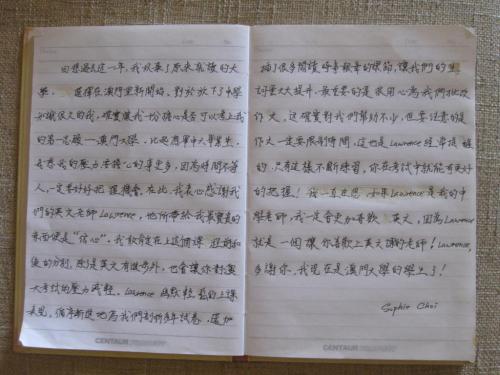 回想過去這一年，我放棄了原來就讀的大
學，選擇在澳門重新開始，對於放下了中學
知識很久的我，確實讓我一份擔心是否可以考上我
的第一志願——澳門大學，比起應屆中六畢業生，
我的壓力和擔心的事更多，因為時間不等
人，一定要好好把握機會。在此，我衷心感謝我
們的英文老師Lawrence，他所帶給我最寶貴的
東西便是"信心"，我敢肯定在上這個課程前和
後的分別，除了是英文有進步外，也會讓你對應
大考試的壓力減輕。Lawrence 幽默輕鬆的上課
表現，循序漸進地為我們剖析多年試卷，還加
插了很多閱讀好書報章的環節，讓我們的生
詞量大大提升，最重要的是很用心為我們批改
作文，這確實對我們幫助不少，但要注意的是
作文一定要限制時間，這也是Lawrence 經常提醒
的，只有這樣不斷練習，你在考試中就能有更好
的把握！我一直在想，如果Lawrence是我的中
學老師，我一定會更加喜歡英文，因為Lawrence
就是一個讓你喜歡上英文課的老師！Lawrence,
多謝你，我現在是澳門大學的學生了！
Sophie Choi
CENTAUR
CENTAUR